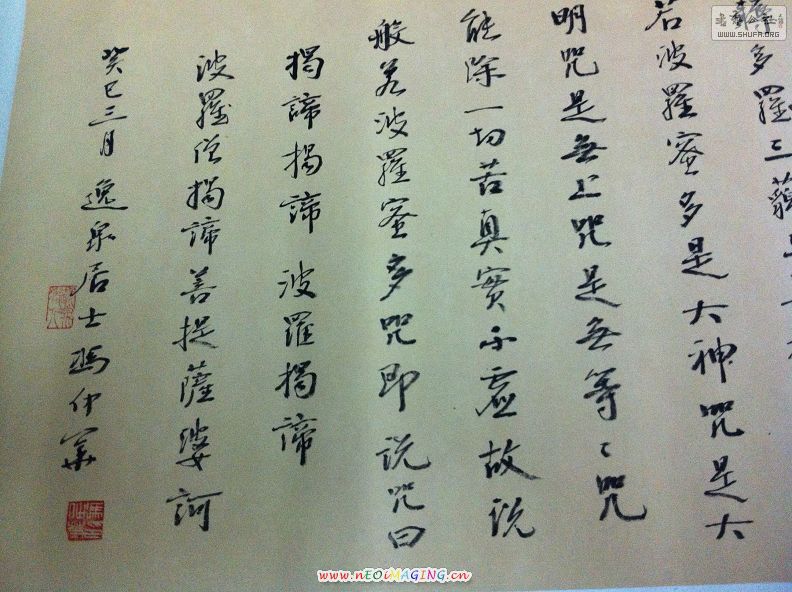 耨多羅三藐
若波羅蜜多是大神咒是大
明咒是無上咒是無等々咒
能除一切苦真實不虛故説
般若波羅蜜多咒即说咒曰
揭諦揭諦波羅揭諦
波羅僧揭諦善提薩婆訶
癸巳三月逸泉居士馮仲華
WWW.SHUFA.ORG
www.nEOiMAGiNG.cn